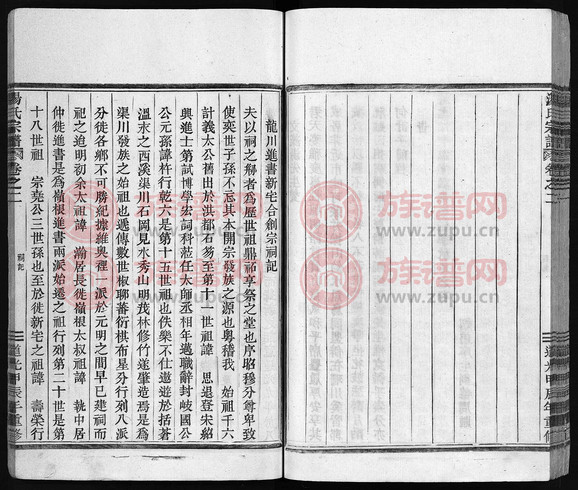 湯氏宗譜
卷之二
道光甲辰年重修
龍川進書新宅合創宗祠記
夫以祠之解者為歷世祖鼎祁享祭之堂也序昭穆分尊卑致
使奕世子孫不忘其本開宗發族之源也粵稽我　始祖千六
計義太公舊出於洪都石芴至第十一世祖諱　思退登宋紹
興進士第試博學宏詞科荏任太師丞相年邁職辭封岐國公
公元孫諱杵行乾六是第十五世祖也佚樂不仕遨遊於括蒼
溫水之西溪渠川石岡見水秀山明茂林修竹遂肇造焉是為
渠川發族之始祖也遞傳數世椒聊蕃衍棋布星分行列八派
分徙各鄉不可勝紀據維與裡一派於元明之間早已建祠而
祀之迨明初余太祖諱　瀚居長徙嶺根太叔祖諱　執中居
仲徙進書是為嶺根進書兩派始遷之祖行列第二十世是第
十八世祖　宗堯公三世孫也至於徙新宅之祖諱　壽榮行
湯氏宗譜
卷之二
祠記
道光甲辰年重修
族谱网
www.zupu.cn
族谱网
www.zupu.cn